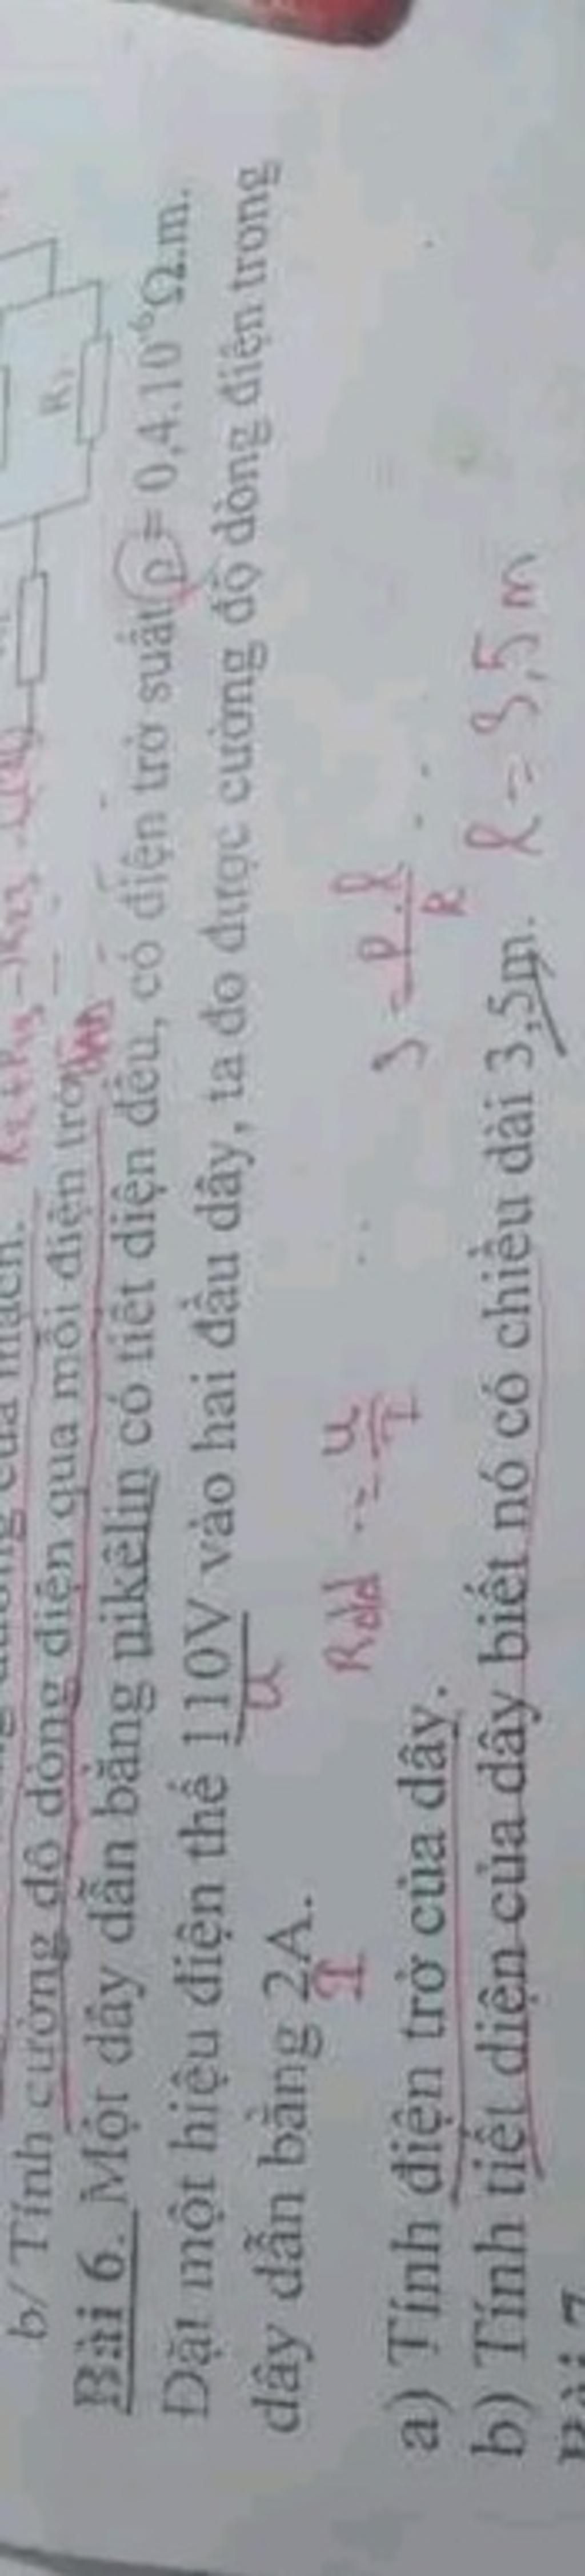 b/ Tính cường độ dòng điện qua mỗi điện trở
Bài 6. Một dây dẫn bằng nikêlin có tiết diện đều, có điện trở suất ρ = 0,4.10⁻⁶Ω.m.
Đặt một hiệu điện thế 110V vào hai đầu dây, ta đo được cường độ dòng điện trong
U
dây dẫn bằng 2A.
I
Rdd = U/I
S = ρ.l/R
a) Tính điện trở của dây.
b) Tính tiết diện của dây biết nó có chiều dài 3,5m. l = 3,5 m